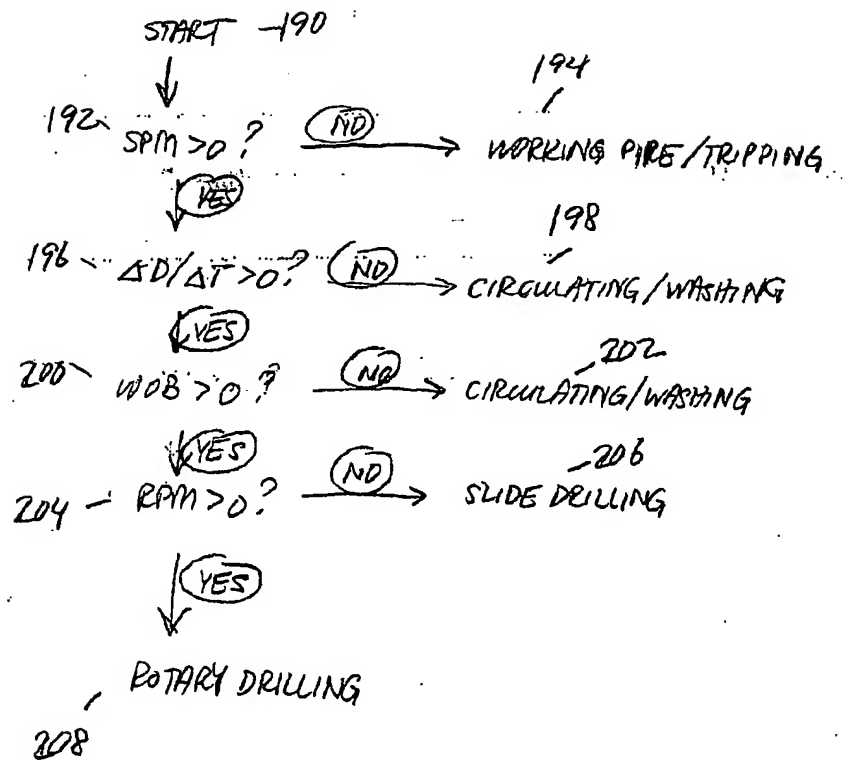 START 190
194
192 SPM>0? NO WORKING PIPE/TRIPPING
YES
198
196 ΔD/ΔT>0? NO CIRCULATING/WASHING
YES
202
200 WOB>0? NO CIRCULATING/WASHING
YES
206
204 RPM>0? NO SLIDE DRILLING
YES
ROTARY DRILLING
208